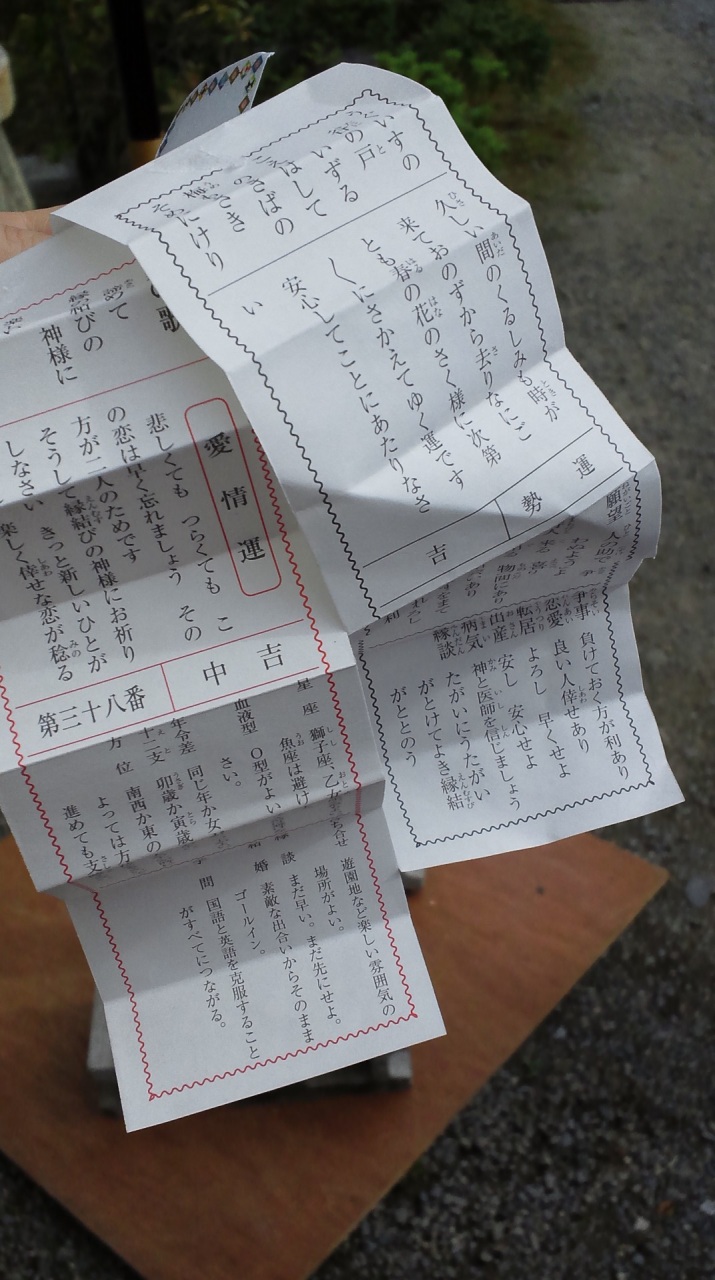 いすの
の戸
いずる
はして
さばの
のさき
にけり
久しい間のくるしみも時が
来ておのずから去りなにご
とも春の花のさく様に次第
〱にさかえてゆく運です
安心してことにあたりなさ
い
運勢
吉
願望
争事 負けておく方が利あり
恋愛 良い人倖せあり
転居 よろし 早くせよ
出産 安し 安心せよ
病気 神と医師を信じましょう
縁談 たがいにうたがい
がとけてよき縁結
がととのう
の歌
めて
縁結びの
神様に
愛情運
悲しくても つらくても こ
の恋は早く忘れましょう その
方が二人のためです
そうして縁結びの神様にお祈り
しなさい きっと新しいひとが
楽しく倖せな恋が稔る
中吉
第三十八番
星座 獅子座、乙
魚座は避け
血液型 O型がよい
さい。
年令差 同じ年か女
十二支 卯歳か寅歳
方位 南西か東の
よっては方
進めても支
遊園地など楽しい雰囲気の
場所がよい。
談 まだ早い。まだ先にせよ。
婚 素敵な出合いからそのまま
ゴールイン。
問 国語と英語を克服すること
がすべてにつながる。